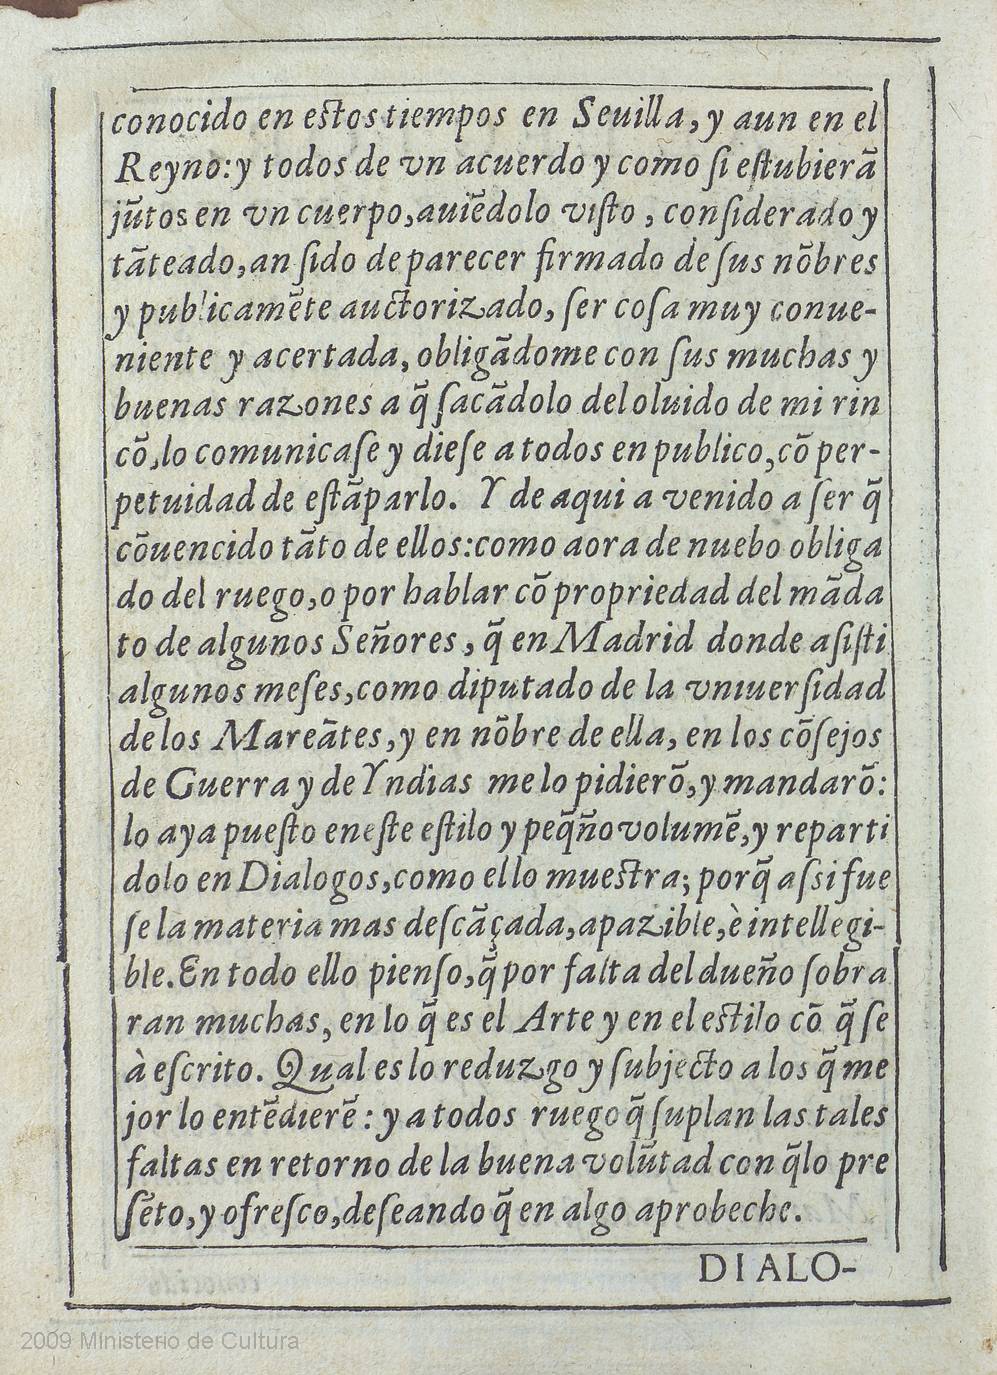 conocido en estos tiempos en Seuilla, y aun en el
Reyno: y todos de vn acuerdo y como ſi eſtubierā
jūtos en vn cuerpo, auiēdolo viſto, conſiderado y
tāteado, an ſido de parecer firmado de ſus nōbres
y publicamēte auctorizado, ſer coſa muy conue-
niente y acertada, obligādome con ſus muchas y
buenas razones a q̄ ſacādolo del oluido de mi rin
cō, lo comunicaſe y dieſe a todos en publico, cō per-
petuidad de eſtāparlo. Y de aqui a venido a ſer q̄
cōuencido tāto de ellos: como aora de nuebo obliga
do del ruego, o por hablar cō propriedad del māda
to de algunos Señores, q̄ en Madrid donde aſiſti
algunos meſes, como diputado de la vniuerſidad
de los Mareātes, y en nōbre de ella, en los cōſejos
de Guerra y de Yndias me lo pidierō, y mandarō:
lo aya pueſto en eſte eſtilo y peq̄ño volumē, y reparti
dolo en Dialogos, como ello muestra; porq̄ aſsi fue
ſe la materia mas deſcāçada, apazible, è intellegi-
ble. En todo ello pienſo, q̄ por falta del dueño ſobra
ran muchas, en lo q̄ es el Arte y en el estilo cō q̄ ſe
à eſcrito. Qual es lo reduzgo y ſubjecto a los q̄ me
jor lo entēdierē: y a todos ruego q̄ ſuplan las tales
faltas en retorno de la buena volūtad con q̄lo pre
ſēto, y ofreſco, deſeando q̄ en algo aprobeche.
DIALO-
2009 Ministerio de Cultura